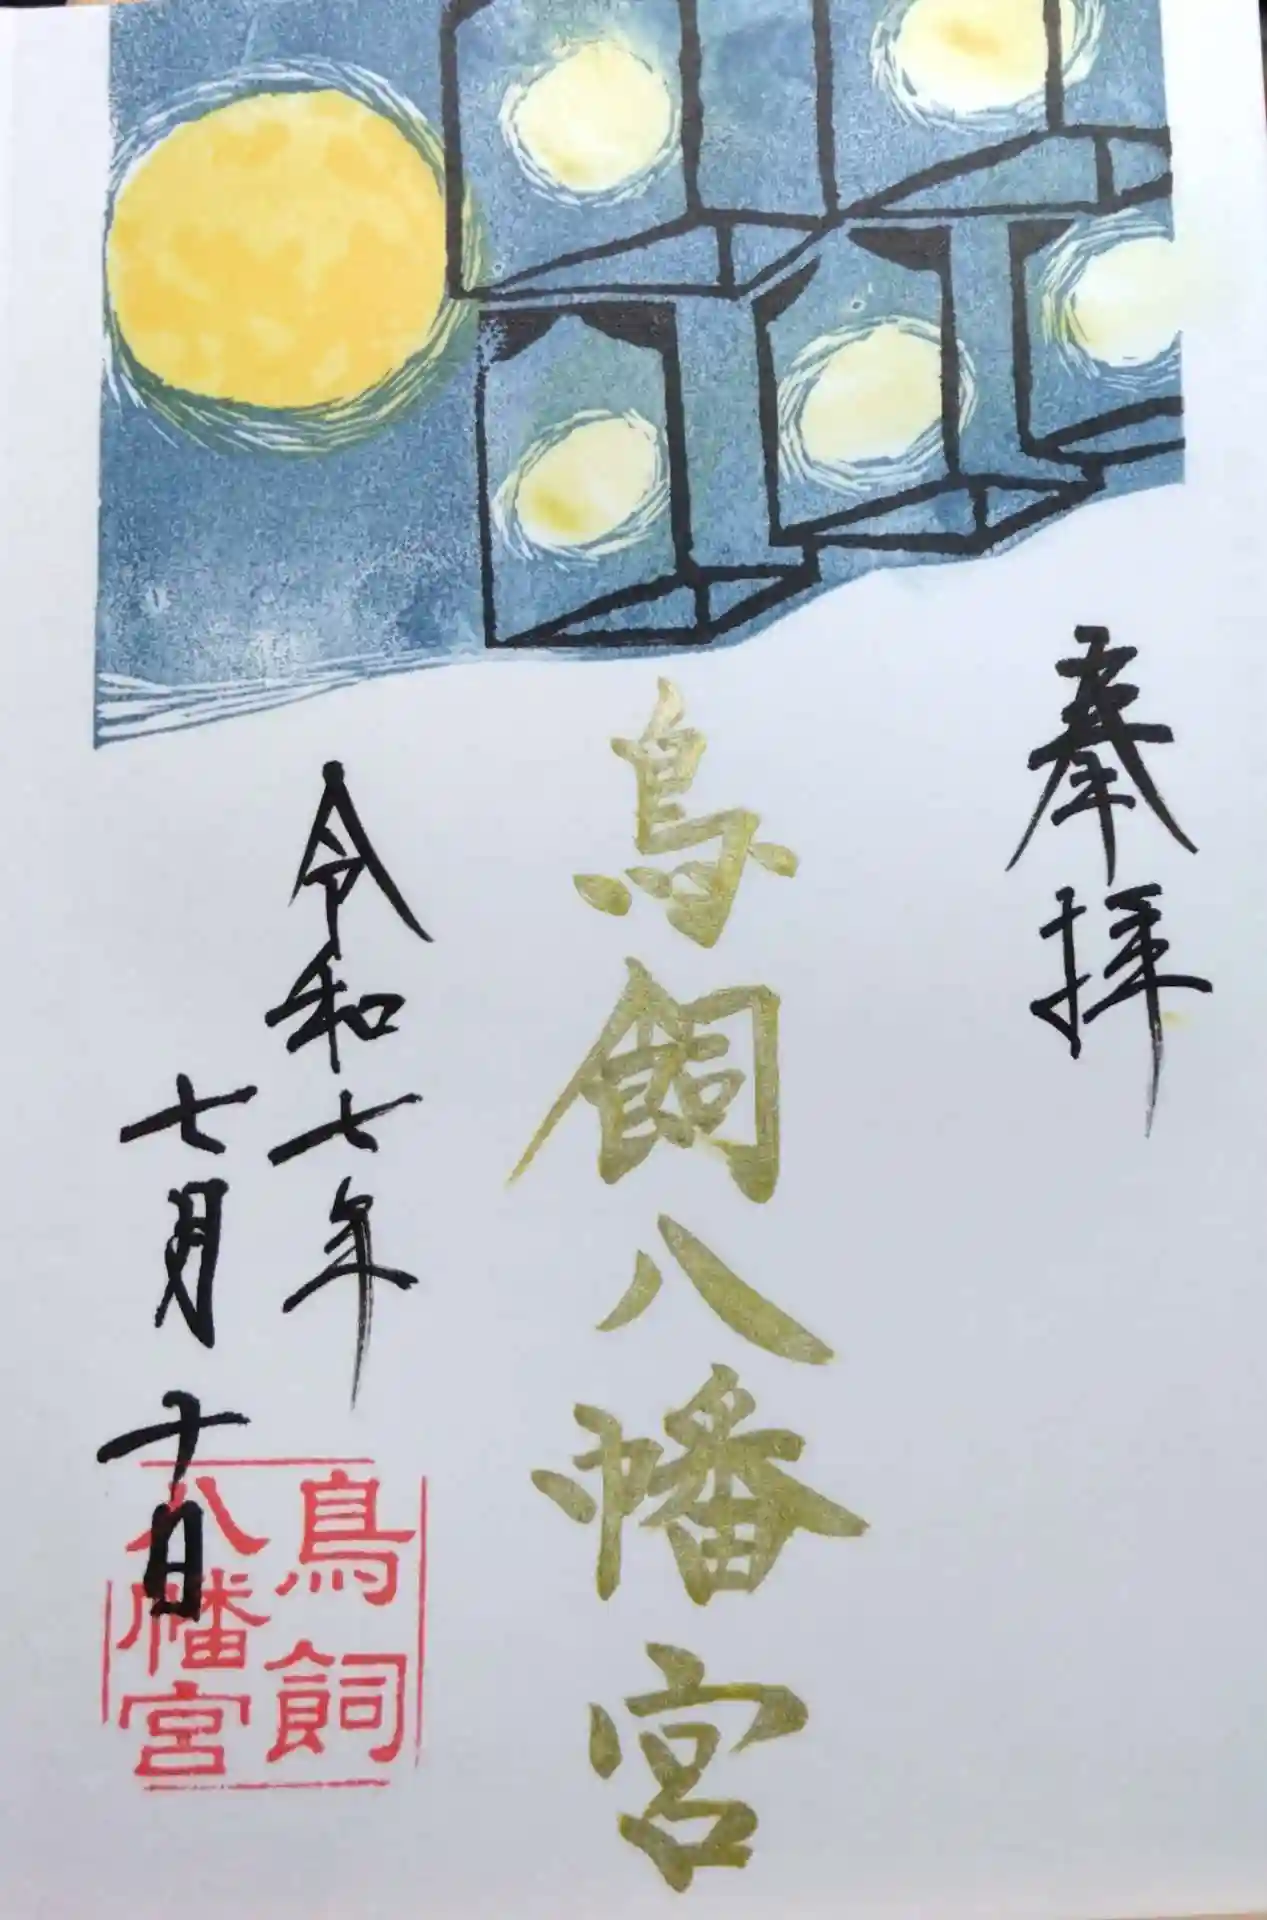 奉拝
鳥飼八幡宮
令和七年
七月十日
鳥飼
八幡宮